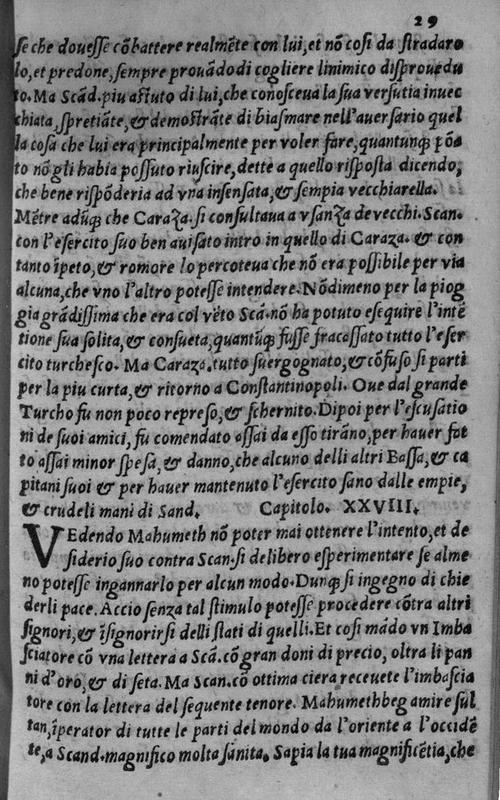 29
se che douesse cõbattere realmẽte con lui, et nõ cosi da stradaro
lo, et predone, sempre prouãdo di cogliere linimico disprouedu
to. Ma Scãd. piu astuto di lui, che conosceua la sua versutia inuec
chiata, spretiãte, & demostrãte di biasmare nell'auersario quel
la cosa che lui era principalmente per voler fare, quantunqȝ põa
to nõ gli habia possuto riuscire, dette a quello risposta dicendo;
che bene rispõderia ad vna insensata, & sempia vecchiarella.
Mẽtre adũqȝ che Caraza. si consultaua a vsanza de vecchi. Scan.
con l'esercito suo ben auisato intro in quello di Caraza. & con
tanto ĩpeto, & romore lo percoteua che nõ era possibile per via
alcuna, che vno l'altro potesse intendere. Nõdimeno per la piog
gia grãdissima che era col vẽto Scã. nõ ha potuto esequire l'intẽ
tione sua solita, & consueta, quantũqȝ fusse fracassato tutto l'eser
cito turchesco. Ma Caraza. tutto suergognato, & cõfuso si parti
per la piu curta, & ritorno a Constantinopoli. Oue dal grande
Turcho fu non poco represo, & schernito. Dipoi per l'escusatio
ni de suoi amici, fu comendato assai da esso tirãno, per hauer fat
to assai minor spesa, & danno, che alcuno delli altri Bassa, & ca
pitani suoi & per hauer mantenuto l'esercito sano dalle empie,
& crudeli mani di Sand. Capitolo. XXVIII.
VEdendo Mahumeth nõ poter mai ottenere l'intento, et de
siderio suo contra Scan. si delibero esperimentare se alme
no potesse ingannarlo per alcun modo. Dunqȝ si ingegno di chie
derli pace. Accio senza tal stimulo potesse procedere cõtra altri
signori, & ĩsignorirsi delli stati di quelli. Et cosi mãdo vn Imba
sciatore cõ vna lettera a Scã. cõ gran doni di precio, oltra li pan
ni d'oro, & di seta. Ma Scan. cõ ottima ciera receuete l'imbascia
tore con la lettera del sequente tenore. Mahumethbeg amire sul
tan, ĩperator di tutte le parti del mondo da l'oriente a l'occidẽ
te, a Scand. magnifico molta sanita. Sapia la tua magnificẽtia, che